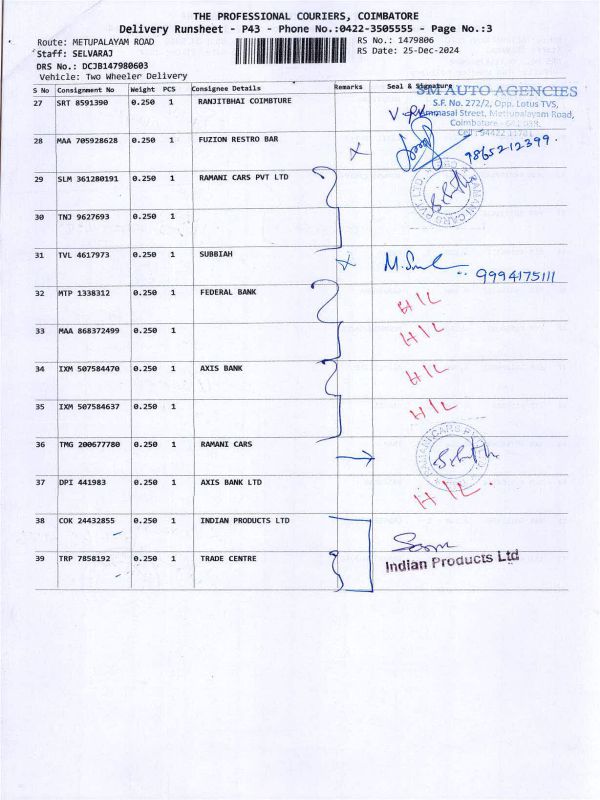 THE PROFESSIONAL COURIERS, COIMBATORE
Delivery Runsheet - P43 - Phone No.:0422-3505555 - Page No.:3
Route: METUPALAYAM ROAD RS No.: 1479806
Staff: SELVARAJ RS Date: 25-Dec-2024
DRS No.: DCJB147980603
Vehicle: Two Wheeler Delivery
S No Consignment No Weight PCS Consignee Details Remarks Seal & Signature
SM AUTO AGENCIES
27 SRT 8591390 0.250 1 RANJITBHAI COIMBTURE
S.F. No. 272/2, Opp. Lotus TVS,
Street, Mettupalayam Road,
Coimbatore - 641 038.
28 MAA 705928628 0.250 1 FUZION RESTRO BAR 9865212399.
29 SLM 361280191 0.250 1 RAMANI CARS PVT LTD
RAMANI CARS PVT. LTD.
30 TNJ 9627693 0.250 1
31 TVL 4617973 0.250 1 SUBBIAH
9994175111
32 MTP 1338312 0.250 1 FEDERAL BANK H/L
33 MAA 868372499 0.250 1 H/L
34 IXM 507584470 0.250 1 AXIS BANK H/L
35 IXM 507584637 0.250 1 H/L
36 TMG 200677780 0.250 1 RAMANI CARS
37 DPI 441983 0.250 1 AXIS BANK LTD H/L.
38 COK 24432855 0.250 1 INDIAN PRODUCTS LTD
39 TRP 7858192 0.250 1 TRADE CENTRE Indian Products Ltd